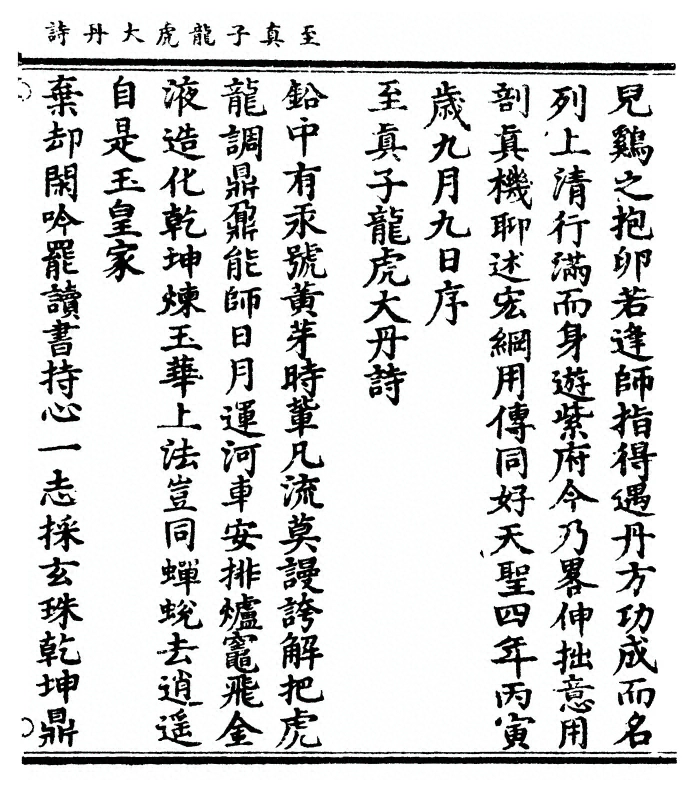 至真子龍虎大丹詩
兒鷄之抱卵若逢師指得遇丹方功成而名
列上清行滿而身遊紫府今乃畧伸拙意用
剖真機聊述宏綱用傳同好天聖四年丙寅
歲九月九日序
至真子龍虎大丹詩
鉛中有汞號黃芽時輩凡流莫謾誇解把虎
龍調鼎鼐能師日月運河車安排爐竈飛金
液造化乾坤煉玉華上法豈同蟬蛻去逍遥
自是玉皇家
棄却閑吟罷讀書持心一志採玄珠乾坤鼎